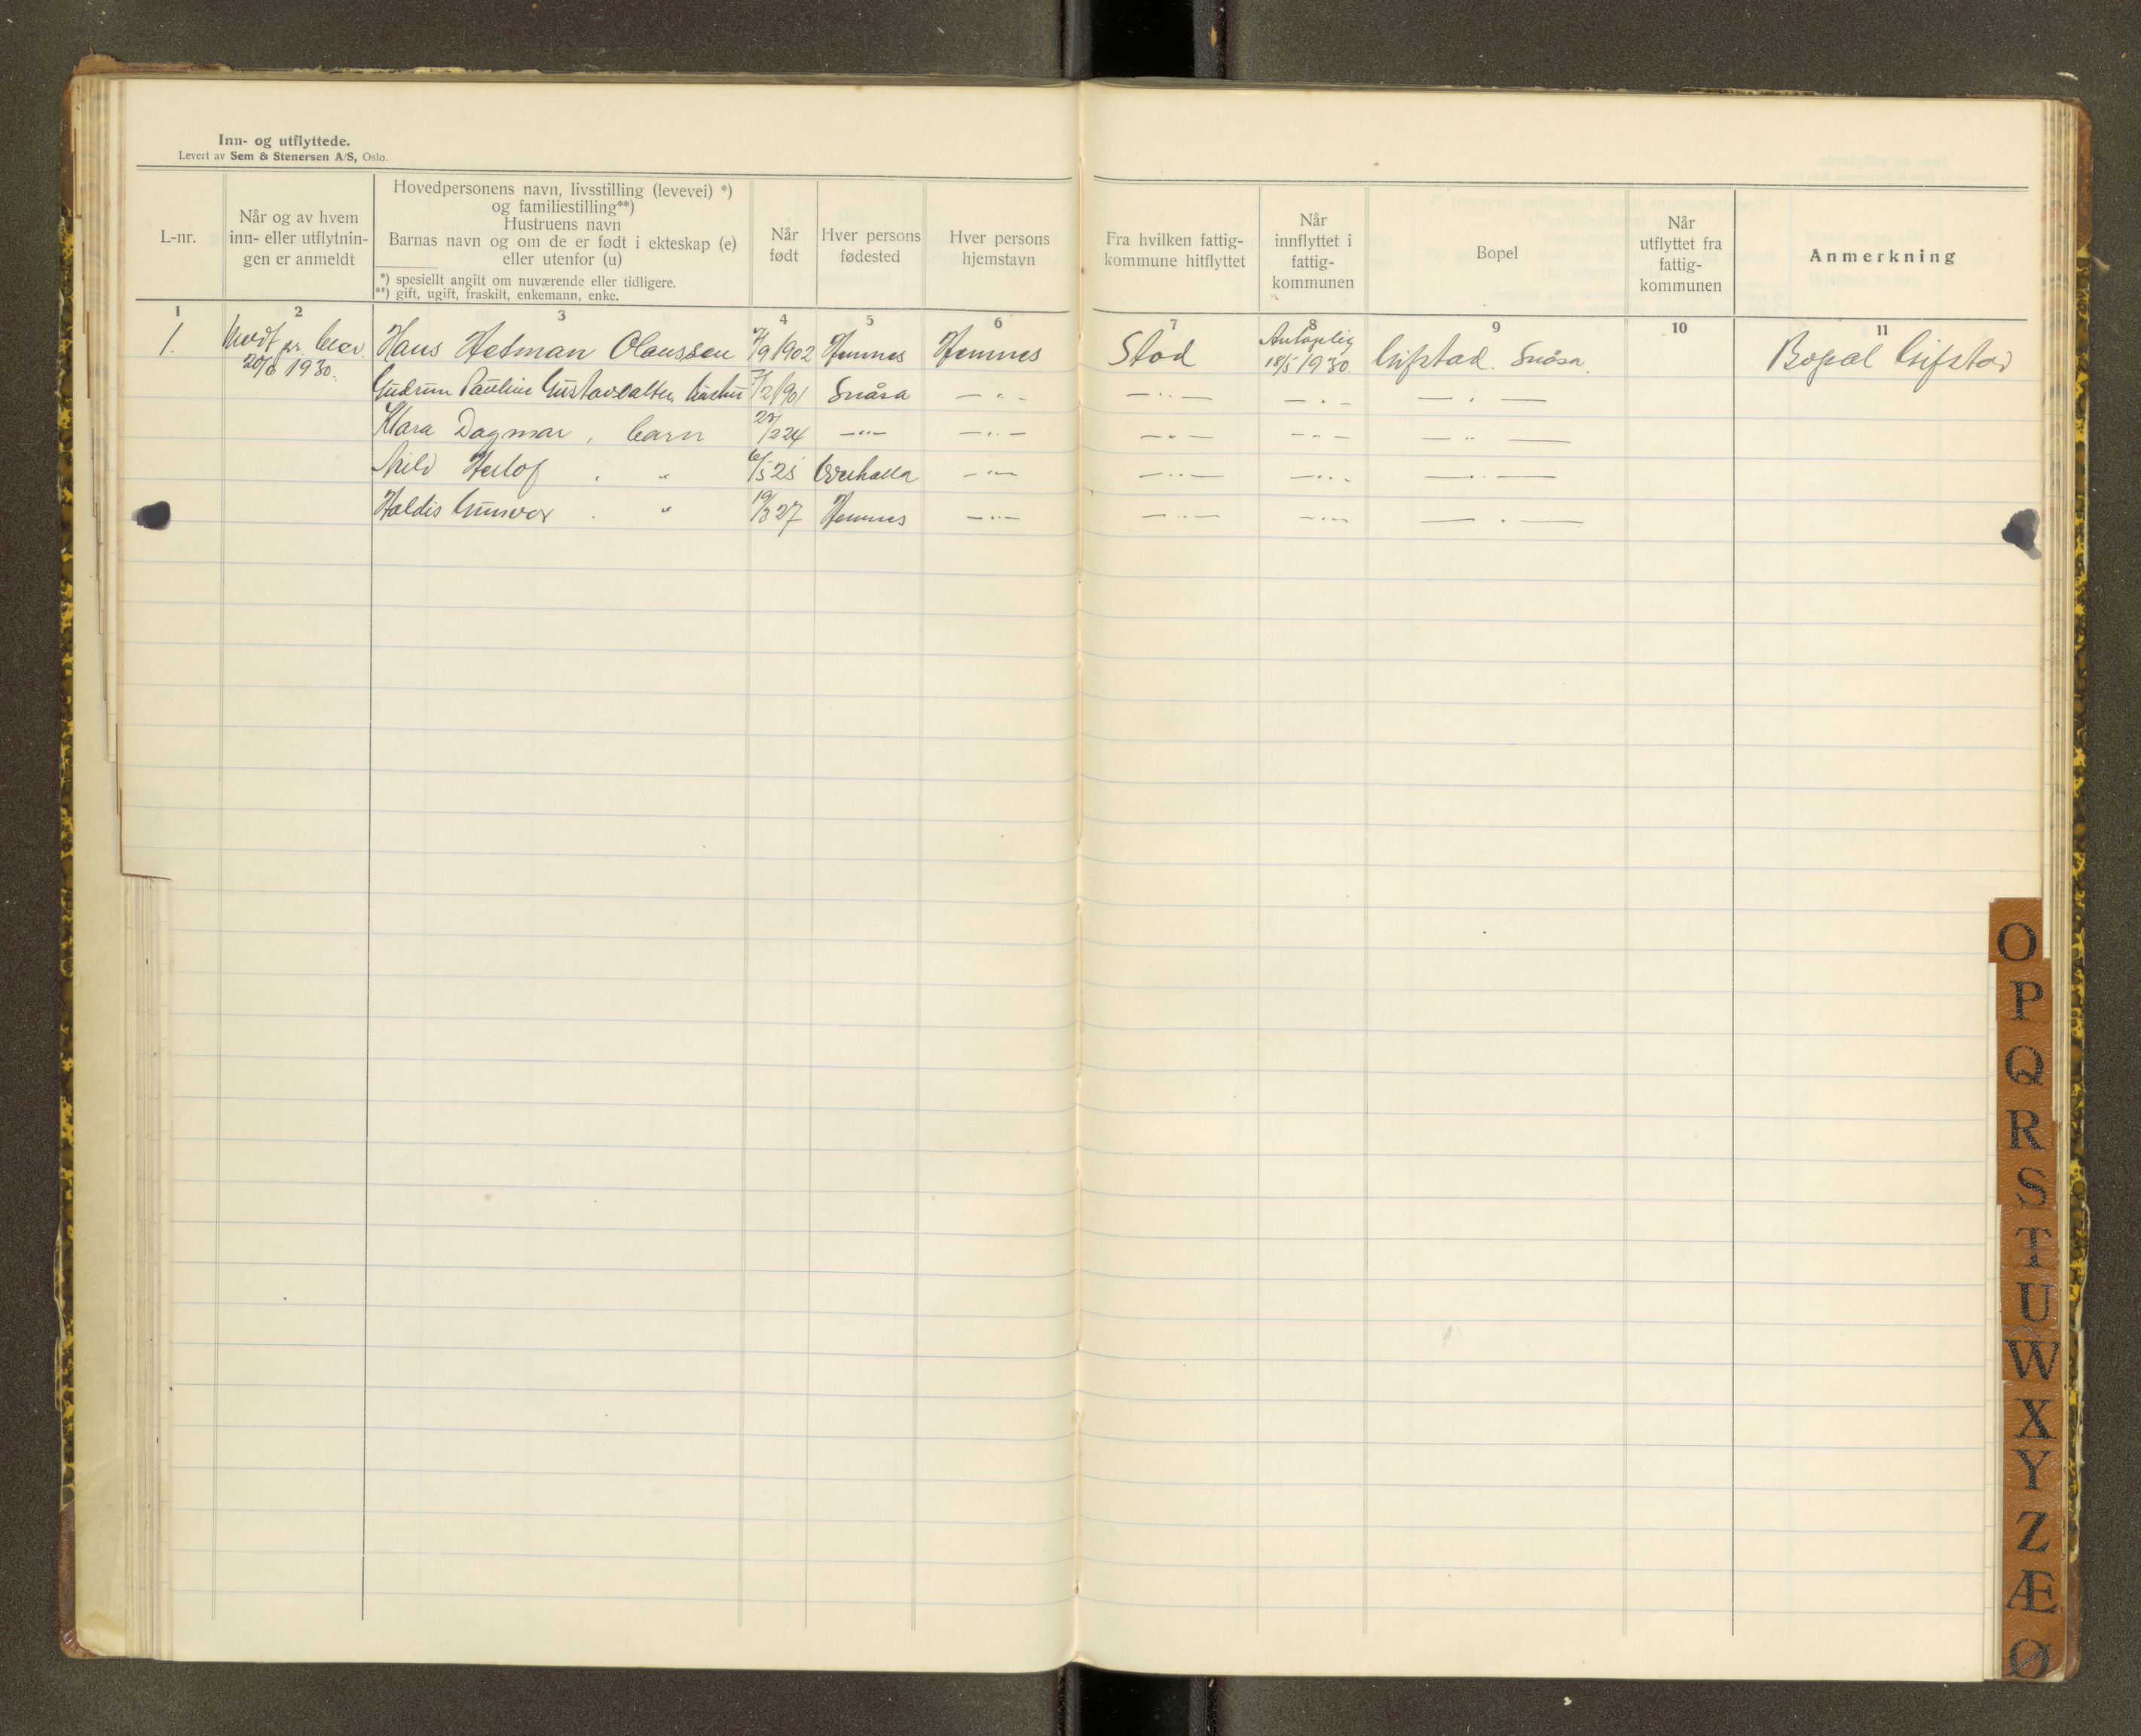 Inn- og utflyttede.
Levert av Sem & Stenersen A/S, Oslo.
L-nr.
Når og av hvem
inn- eller utflytnin-
gen er anmeldt
Hovedpersonens navn, livsstilling (levevei) *)
og familiestilling**)
Hustruens navn
Barnas navn og om de er født i ekteskap (e)
eller utenfor (u)
*) spesiellt angitt om nuværende eller tidligere.
**) gift, ugift, fraskilt, enkemann, enke.
Når
født
Hver persons
fødested
Hver persons
hjemstavn
Fra hvilken fattig-
kommune hitflyttet
Når
innflyttet i
fattig-
kommunen
Bopel
Når
utflyttet fra
fattig-
kommunen
Anmerkning
1 2 3 4 5 6 7 8 9 10 11
1. pr. Hans Hetman Olaussen 7/9 1902 Hemnes Hemnes Stod Antagelig Snåsa. Bopæl
20/6 1930. 18/5 1930.
Gudrun Pauline Gustavsdatter, hustru 7/2 1901 Snåsa — " — — " — — " — — " —
Klara Dagmar, barn 27/2 24 — " — — " — — " — — " — — " —
Herlof " 6/5 25 Overhalla — " — — " — — " — — " —
Haldis Gunvor " 19/3 27 Hemnes — " — — " — — " — — " —
O
P
Q
R
S
T
U
W
X
Y
Z
Æ
Ø